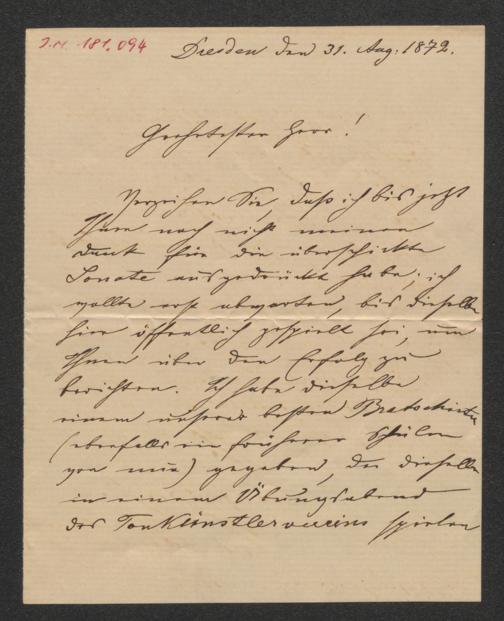 I.N. 181.094
Dresden den 31. Aug. 1872.
Geehrtester Herr!
Verzeihen Sie, daß ich bis jetzt
Ihnen noch nicht meinen
Dank für die überschickte
Sonate ausgedrückt habe; ich
wollte erst abwarten, bis dieselbe
hier öffentlich gespielt sei, um
Ihnen über den Erfolg zu
berichten. Ich habe dieselbe
einem unserer besten Bratschisten
(ebenfalls ein früherer Schüler
von mir) gegeben, der dieselbe
in einem Übungsabend
des Tonkünstlervereins spielen